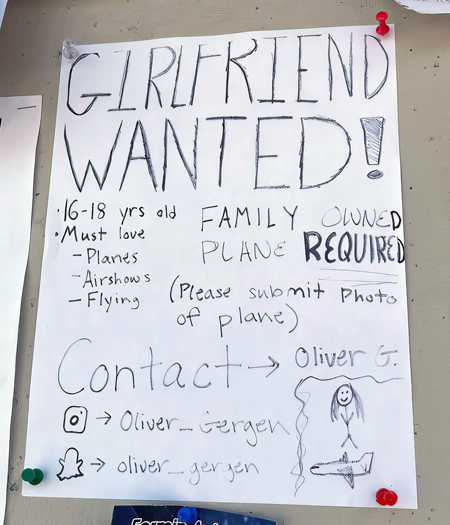 GIRLFRIEND
WANTED!
• 16-18 yrs old
• Must love
- Planes
- Airshows
- Flying
FAMILY OWNED
PLANE REQUIRED
(Please submit photo
of plane)
Contact → Oliver G.
→ Oliver_Gergen
→ oliver_gergen